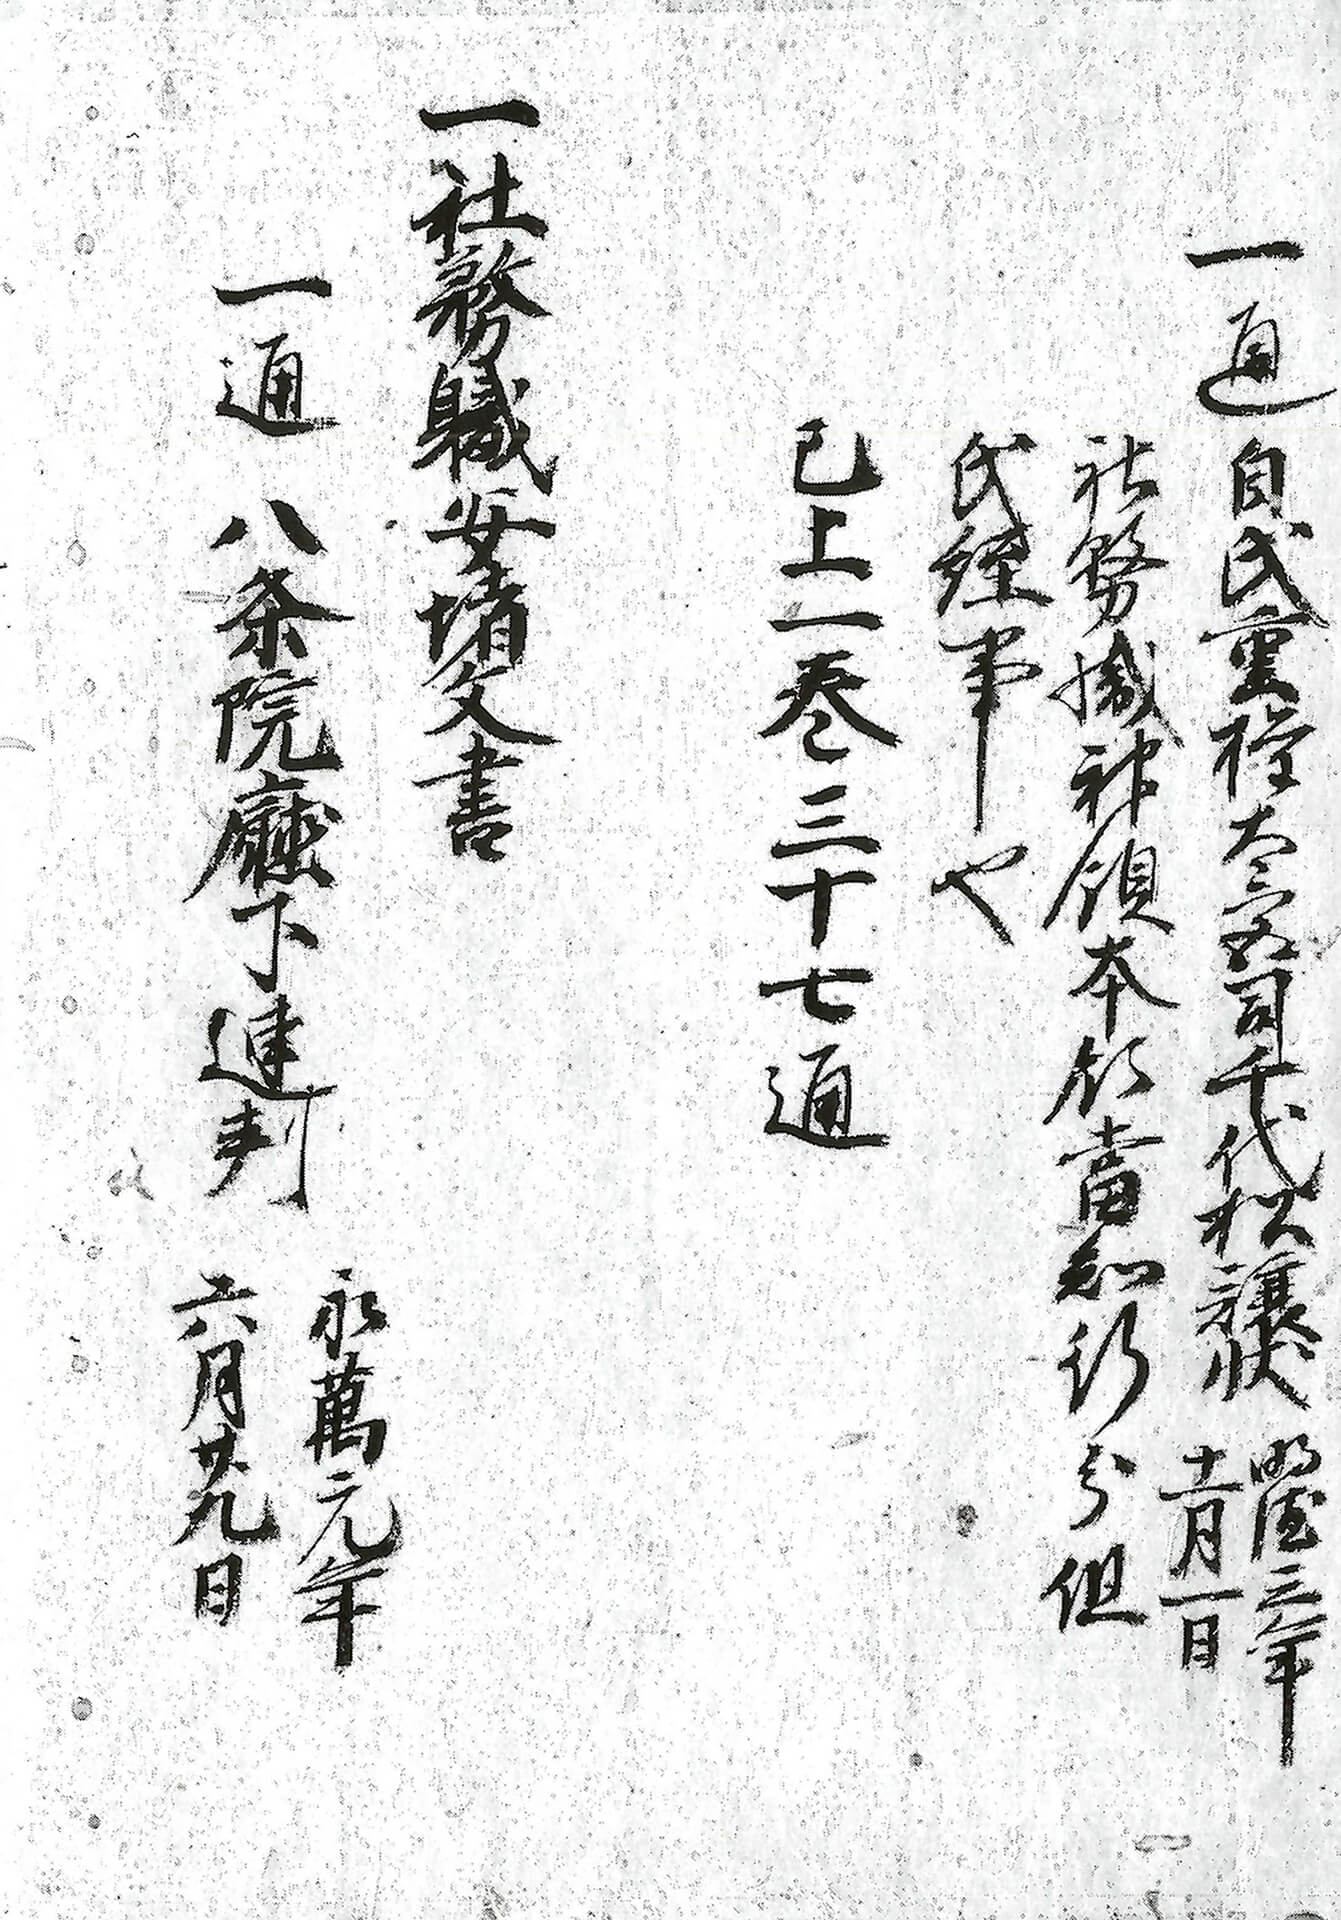 一通 自氏重授大宮司千代松譲状 明徳三年
十一月一日
社務職神領本領當知行分但
氏経事也
已上一巻三十七通
一社務職安堵文書
一通 八条院廳下連判 永萬元年
六月廿九日